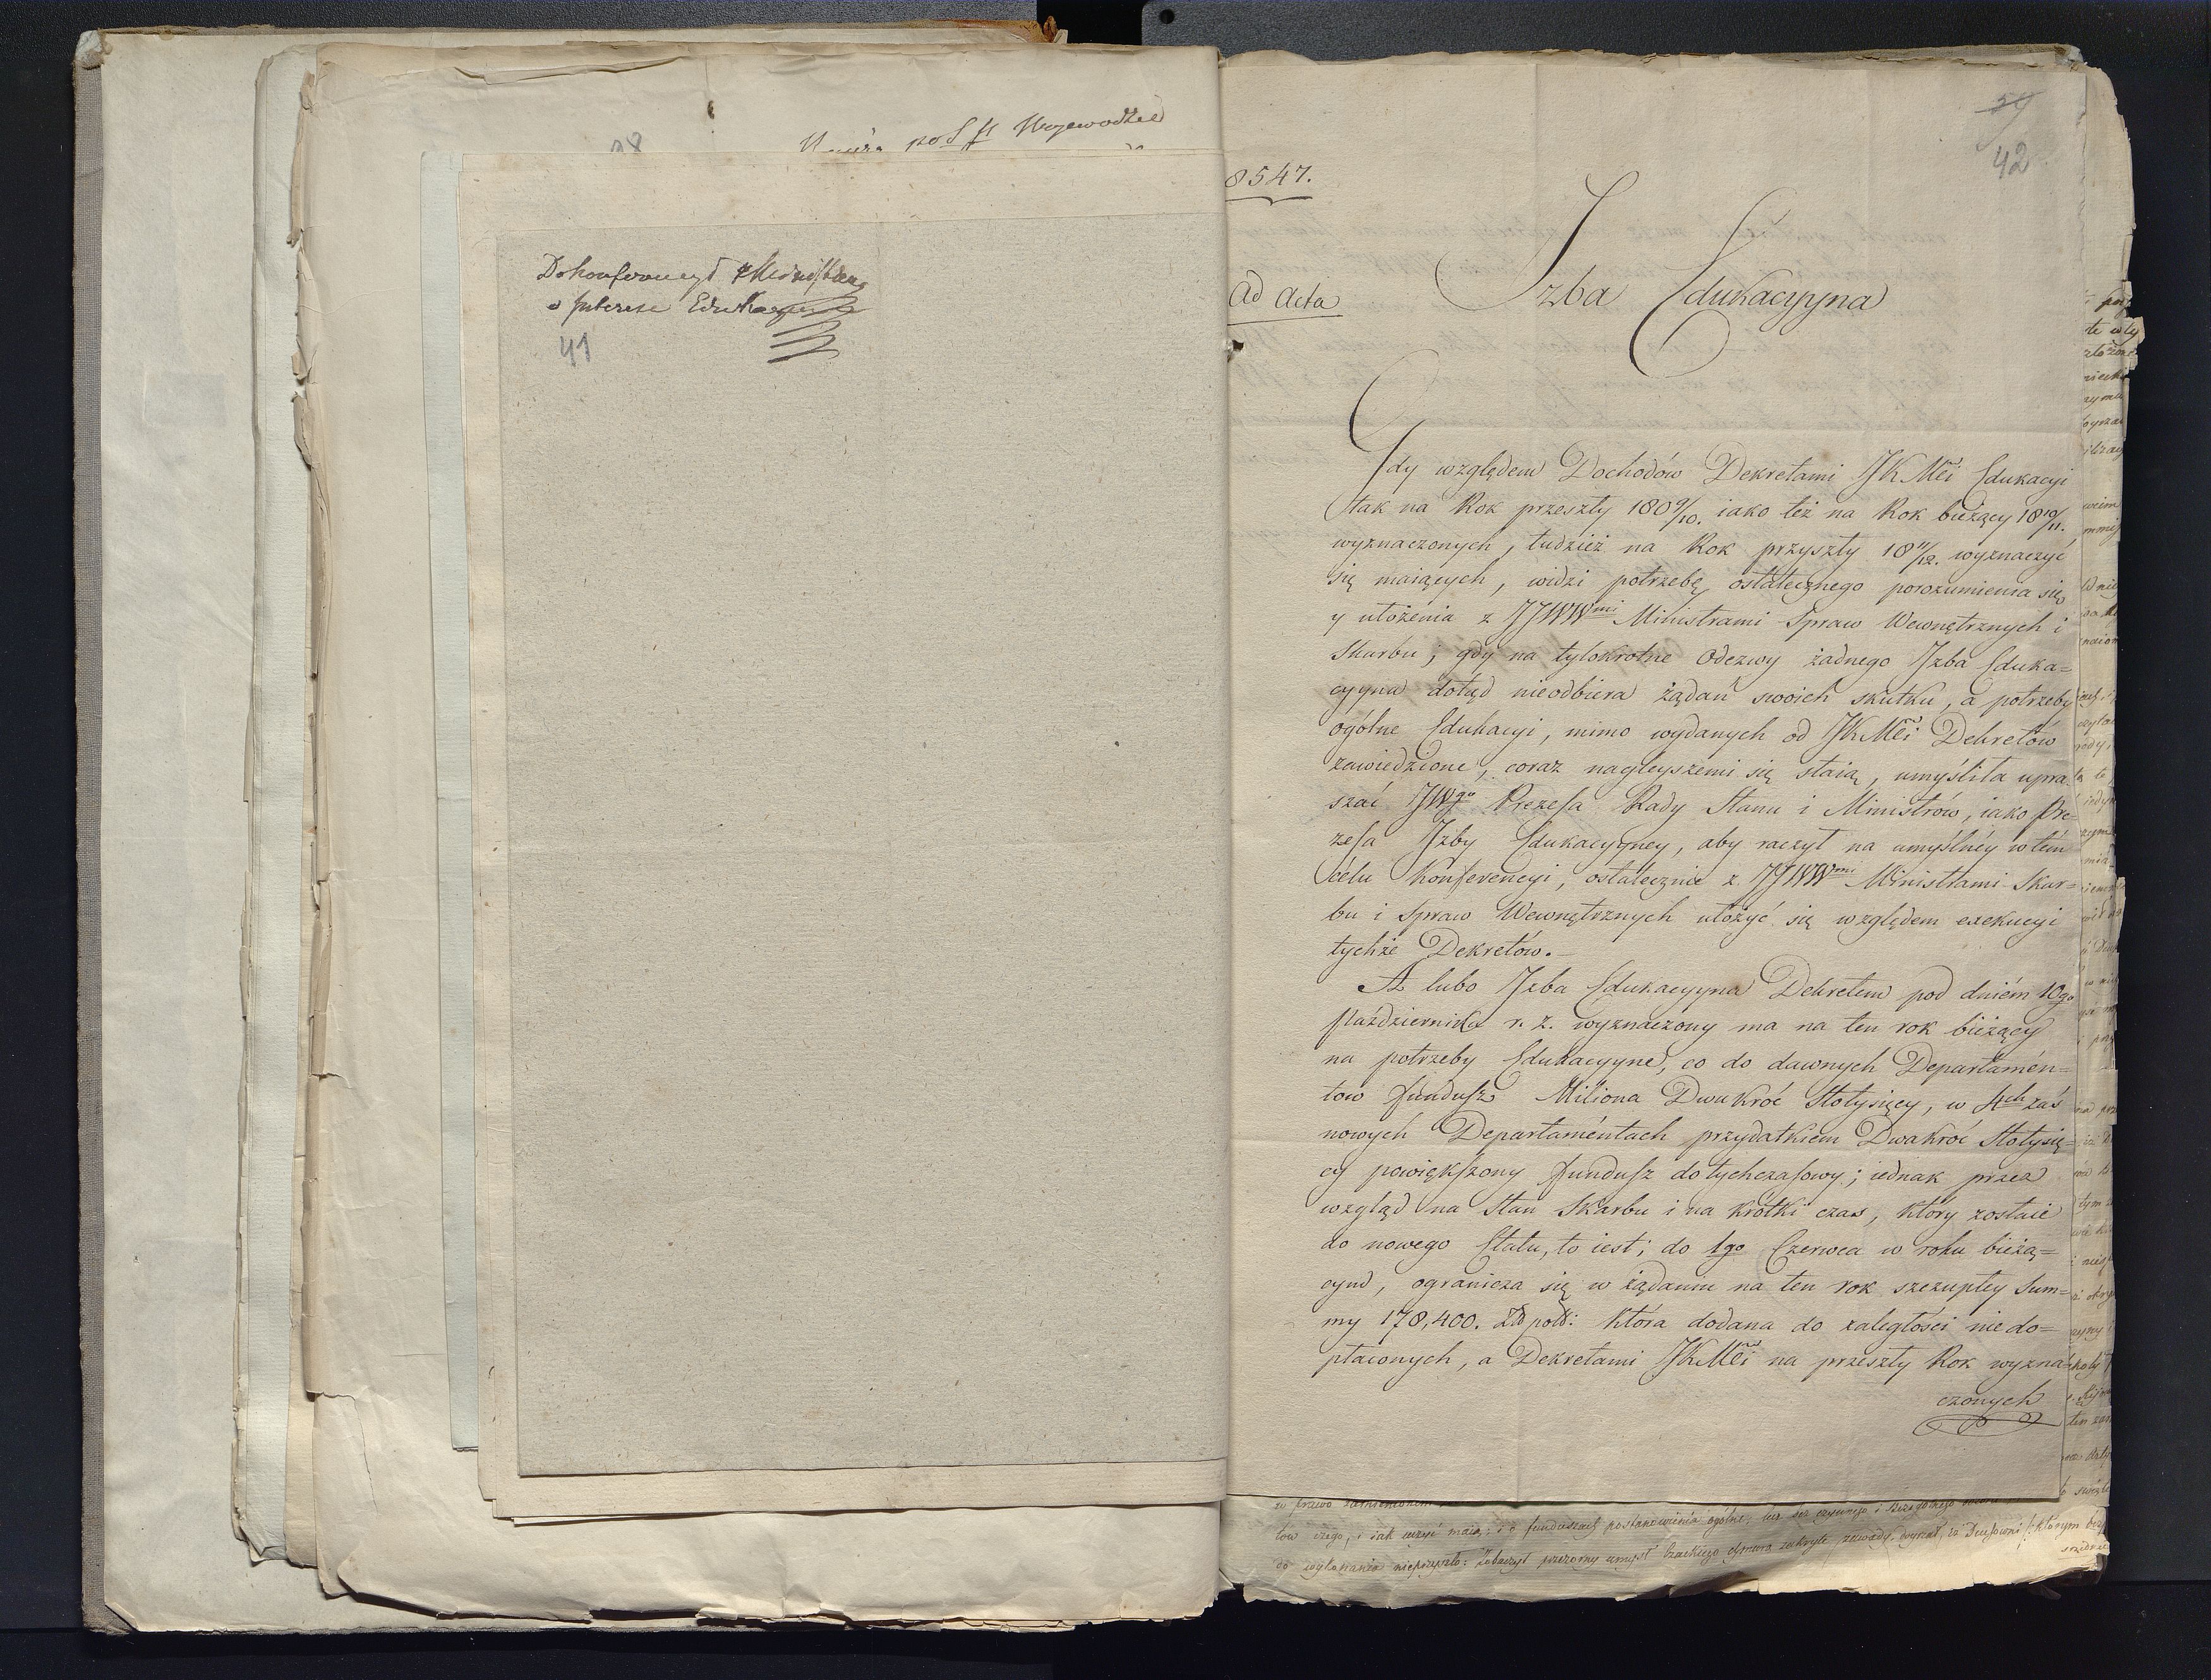 Wojewodztw
38
Do konferencyi z Ministrem
o Interese Edukacyi
41
39
42
8547.
Ad Acta
Izba Edukacyyna
Gdy względem Dochodów Dekretami JKMći Edukacyi
tak na Rok przeszły 1809/10. iako też na Rok bieżący 1810/11.
wyznaczonych, tudzież na Rok przyszły 1811/12. wyznaczyć
się maiących, widzi potrzebę ostatecznego porozumienia się
y ułożenia z JJWWmi Ministrami Spraw Wewnętrznych i
Skarbu; gdy na tylokrotne Odezwy żadnego Izba Eduka=
cyyna dotąd nieodbiera żądań swoich skutku, a potrzeby
ogólne Edukacyi, mimo wydanych od JKMći Dekretów
zawiedzione, coraz nagleyszemi się staią, umyśliła upra
szać JWgo Prezesa Rady Stanu i Ministrów, iako Pre=
zesa Izby Edukacyyney, aby raczył na umyślnéy w tém
célu Konferencyi, ostatecznie z JJWWmi Ministrami Skar=
bu i Spraw Wewnętrznych ułożyć się względem exekucyi
tychże Dekretów.
A lubo Izba Edukacyyna Dekretem pod dniém 10go
Października r. z. wyznaczony ma na ten rok bieżący
na potrzeby Edukacyyne, co do dawnych Departamén=
tow fundusz Miliona Dwakroć Stotysięcy, w 4ch zaś
nowych Departaméntach przydatkiem Dwakroć Stotysię=
cy powiększony fundusz dotychczasowy; iednak przez
wzgląd na Stan Skarbu i na krótki czas, który zostaie
do nowego Etatu, to iest; do 1go Czerwca w roku bieżą=
cym, ogranicza się w żądaniu na ten rok szczupłey Sum=
my 178,400. Złł pols: która dodana do zaległości niedo=
płaconych, a Dekretami JKMći na przeszły Rok wyzna
czonych